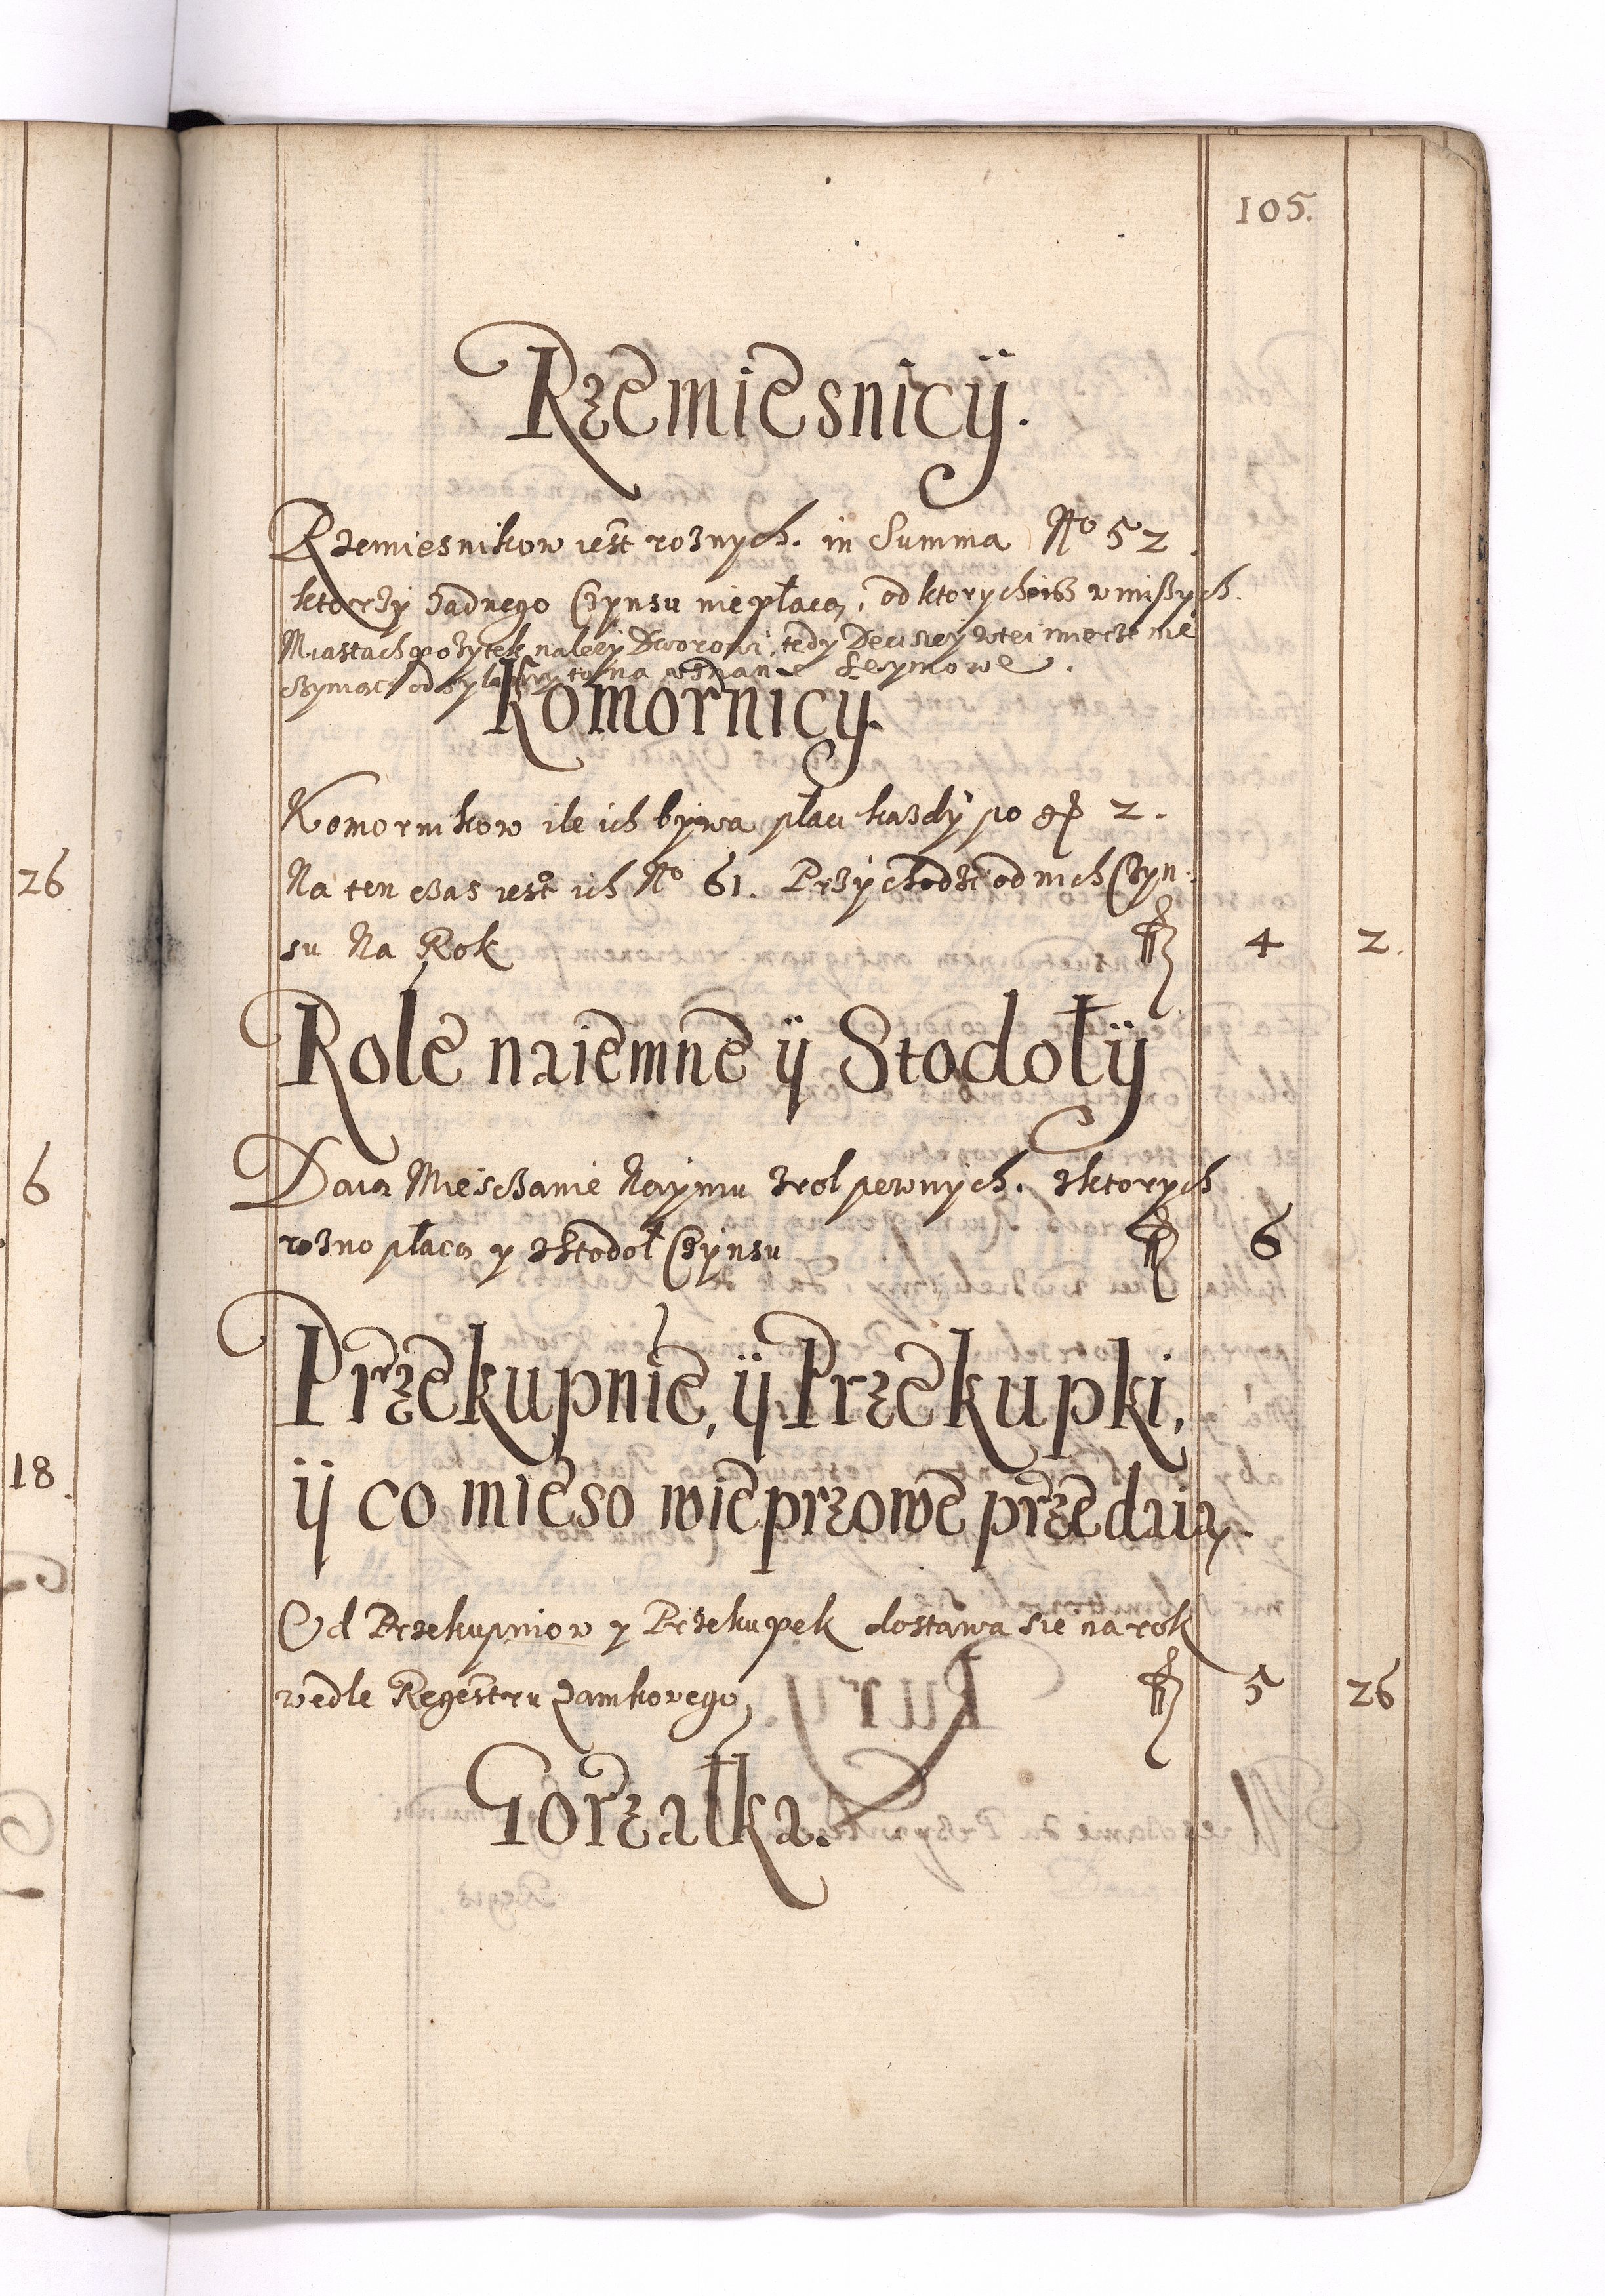 105.
Rzemiesnicÿ.
Rzemiesnikow iest roznych. in Summa No 52
ktorzy zadnego Czynsu nie płacą, od ktorych isz w inszych
Miastach pozytek nalezy Dworowi, tedy Decisiey w tei mierze nie
czyniąc odsyła to na uznanie Seymowe.
Komornicy.
Komornikow ile ich bywa płaci kazdy po gr 2.
Na ten czas iest ich No 61. Przychodzi od nich Czyn-
su Na Rok fl 4 2.
Role naiemne ÿ Stodołÿ
Daią Miesczanie Naymu z rol pewnych. z ktorych
rozno płacą y z Stodoł Czynsu fl 6
Przekupnie, ÿ Przekupki,
ÿ co mieso wieprzowe przedaią.
Od Przekupniow y Przekupek dostawa sie na rok
wedle Regestru Zamkowego fl 5 26
Gorzałka.
26
6
18.